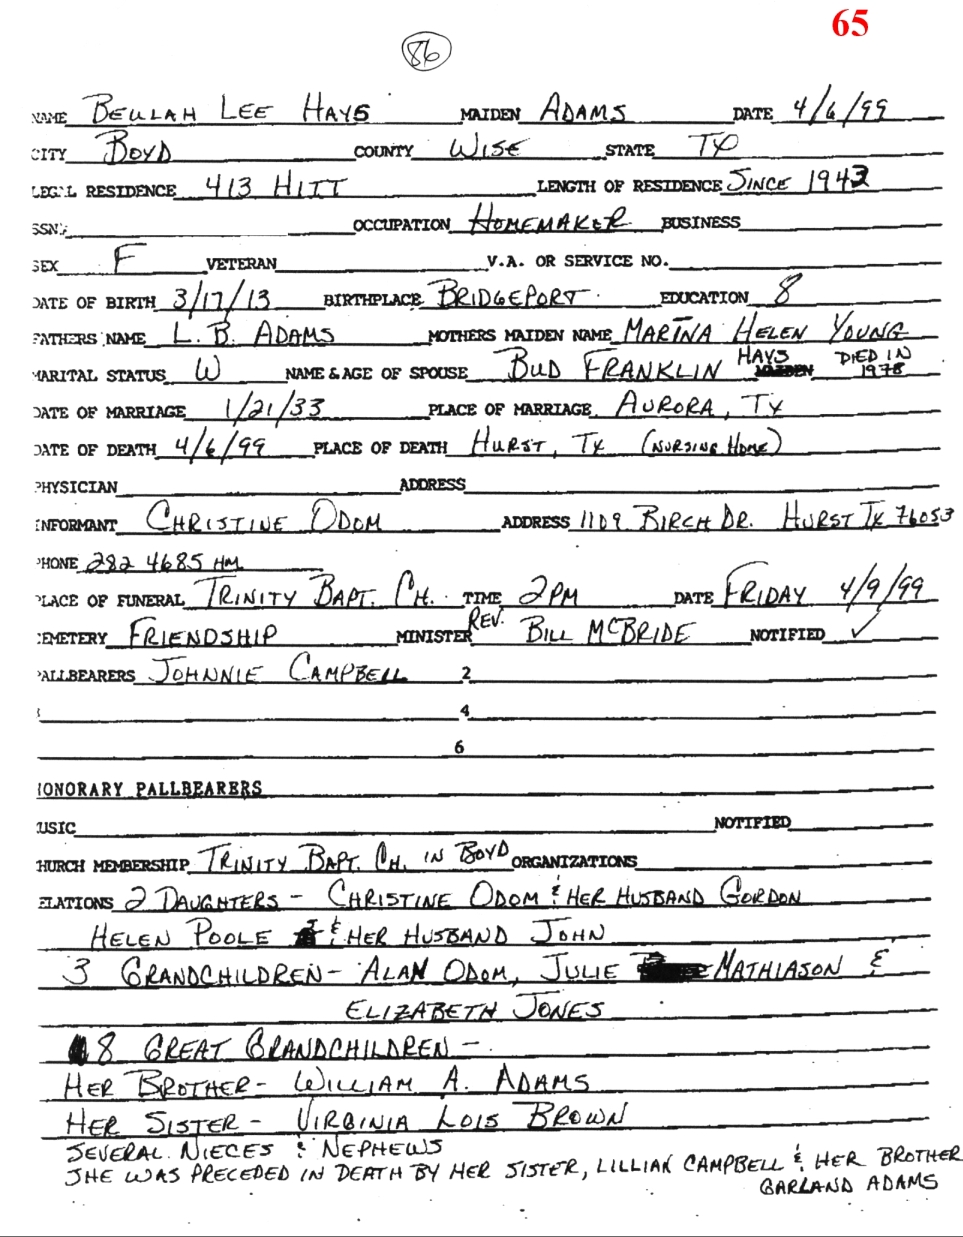 65
86
NAME BEULAH LEE HAYS MAIDEN ADAMS DATE 4/6/99
CITY BOYD COUNTY WISE STATE TX
LEGAL RESIDENCE 413 HITT LENGTH OF RESIDENCE SINCE 1943
SSN: OCCUPATION HOMEMAKER BUSINESS
SEX F VETERAN V.A. OR SERVICE NO.
DATE OF BIRTH 3/17/13 BIRTHPLACE BRIDGEPORT. EDUCATION 8
FATHERS NAME L. B. ADAMS MOTHERS MAIDEN NAME MARTNA HELEN YOUNG
MARITAL STATUS W NAME & AGE OF SPOUSE BUD FRANKLIN HAYS DIED IN 1978
DATE OF MARRIAGE 1/21/33 PLACE OF MARRIAGE AURORA, TX
DATE OF DEATH 4/6/99 PLACE OF DEATH HURST, TX (NURSING HOME)
PHYSICIAN ADDRESS
INFORMANT CHRISTINE ODOM ADDRESS 1109 BIRCH DR. HURST TX 76053
PHONE 282 4685 HM.
PLACE OF FUNERAL TRINITY BAPT. CH. TIME 2PM DATE FRIDAY 4/9/99
CEMETERY FRIENDSHIP MINISTER REV. BILL MCBRIDE NOTIFIED ✓
PALLBEARERS JOHNNIE CAMPBELL 2
4
6
HONORARY PALLBEARERS
MUSIC NOTIFIED
CHURCH MEMBERSHIP TRINITY BAPT. CH. IN BOYD ORGANIZATIONS
RELATIONS 2 DAUGHTERS - CHRISTINE ODOM & HER HUSBAND GORDON
HELEN POOLE & HER HUSBAND JOHN
3 GRANDCHILDREN - ALAN ODOM, JULIE MATHIASON &
ELIZABETH JONES
8 GREAT GRANDCHILDREN -
HER BROTHER - WILLIAM A. ADAMS
HER SISTER - VIRGINIA LOIS BROWN
SEVERAL NIECES & NEPHEWS
SHE WAS PRECEDED IN DEATH BY HER SISTER, LILLIAN CAMPBELL & HER BROTHER
GARLAND ADAMS